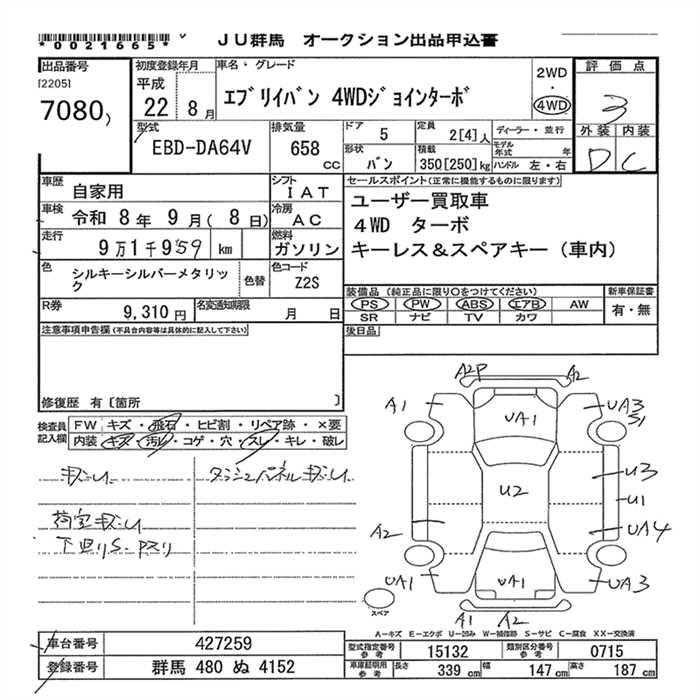 *0021665*
JU群馬 オークション出品申込書
出品番号
[2205]
7080)
初度登録年月
平成
22 8月
車名・グレード
エブリイバン 4WDジョインターボ
2WD
・
4WD
評価点
3
外装 内装
D C
型式
EBD-DA64V
排気量
658
cc
ドア
5
定員
2[4]人
ディーラー・並行
モデル年式 年
形状
バン
積載
350[250]kg
ハンドル 左・右
車歴
自家用
シフト
IAT
車検
令和 8年 9月(8日)
冷房
AC
走行
9万1千959 km
燃料
ガソリン
色
シルキーシルバーメタリック
色替
色コード
Z2S
R券
9,310円
名変通知期限
月 日
セールスポイント(正常に機能するものに限ります)
ユーザー買取車
4WD ターボ
キーレス&スペアキー(車内)
装備品(純正品に限り○をつけてください)
PS PW ABS エアB AW
SR ナビ TV カワ
新車保証書
有・無
後日品
注意事項申告欄(不具合内容等は具体的に記入して下さい)
修復歴 有[箇所 ]
検査員記入欄
FW キズ・飛石・ヒビ割・リペア跡・×要
内装 キズ・汚れ・コゲ・穴・スレ・キレ・破レ
荷室キズU
下回りS.
A2P A2
A1 UA1 UA3
S1
U3
U2 U1
A2 UA4
UA1 UA1 UA3
A1 A2
スペア
A－キズ E－エクボ U－凹み W－補修跡 S－サビ C－腐食 XX－交換済
車台番号 427259
登録番号 群馬 480 ぬ 4152
型式指定番号
参考
15132
類別区分番号
参考
0715
車庫証明用
参考
長さ 339 cm 幅 147 cm 高さ 187 cm